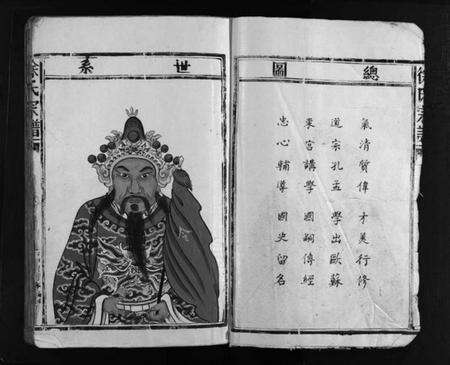 總圖
氣清質偉才美行修
道宗孔孟學出歐蘇
東宮講學國嗣傳經
忠心輔導國史留名
世系
徐氏宗譜